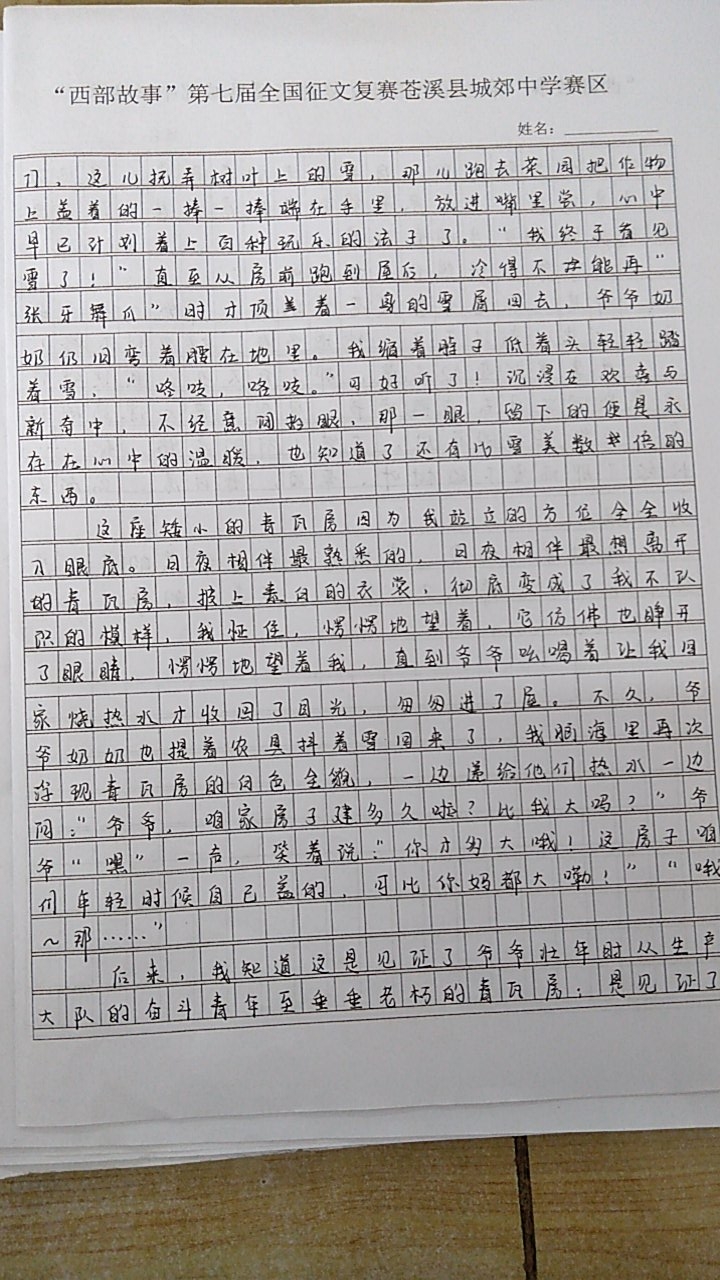 “西部故事”第七届全国征文复赛苍溪县城郊中学赛区
姓名：
了，这儿抚弄树叶上的雪，那儿跑去菜园把作物
上盖着的一捧一捧端在手里，放进嘴里尝，心中
早已计划着上百种玩乐的法子了。“我终于看见
雪了！”直至从房前跑到屋后，冷得不能再“
张牙舞爪”时才顶着一身的雪屑回去，爷爷奶
奶仍旧弯着腰在地里。我缩着脖子低着头轻轻踏
着雪，“咯吱，咯吱。”可好听了！沉浸在欢喜与
新奇中，不经意间抬眼，那一眼，留下的便是永
存在心中的温暖，也知道了还有比雪美数倍的
东西。
这座矮小的青瓦房因为我站立的方位全全收
入眼底。日夜相伴最熟悉的，日夜相伴最想离开
的青瓦房，披上素白的衣裳，彻底变成了我不认
识的模样，我怔住，愣愣地望着，它仿佛也睁开
了眼睛，愣愣地望着我，直到爷爷吆喝着让我回
家烧热水才收回了目光，匆匆进了屋。不久，爷
爷奶奶也提着农具抖着雪回来了，我脑海里再次
浮现青瓦房的白色全貌，一边递给他们热水一边
问：“爷爷，咱家房子建多久啦？比我大吗？”爷
爷“嘿”一声，笑着说：“你才多大哦！这房子咱
们年轻时候自己盖的，可比你妈都大嘞！”“哦
～那……”
后来，我知道这是见证了爷爷壮年时从生产
大队的奋斗青年至垂垂老朽的青瓦房；是见证了